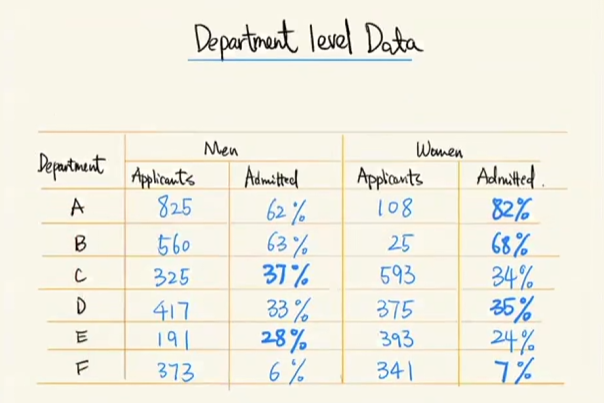 Department level Data
Men Women
Department Applicants Admitted Applicants Admitted.
A 825 62% 108 82%
B 560 63% 25 68%
C 325 37% 593 34%
D 417 33% 375 35%
E 191 28% 393 24%
F 373 6% 341 7%